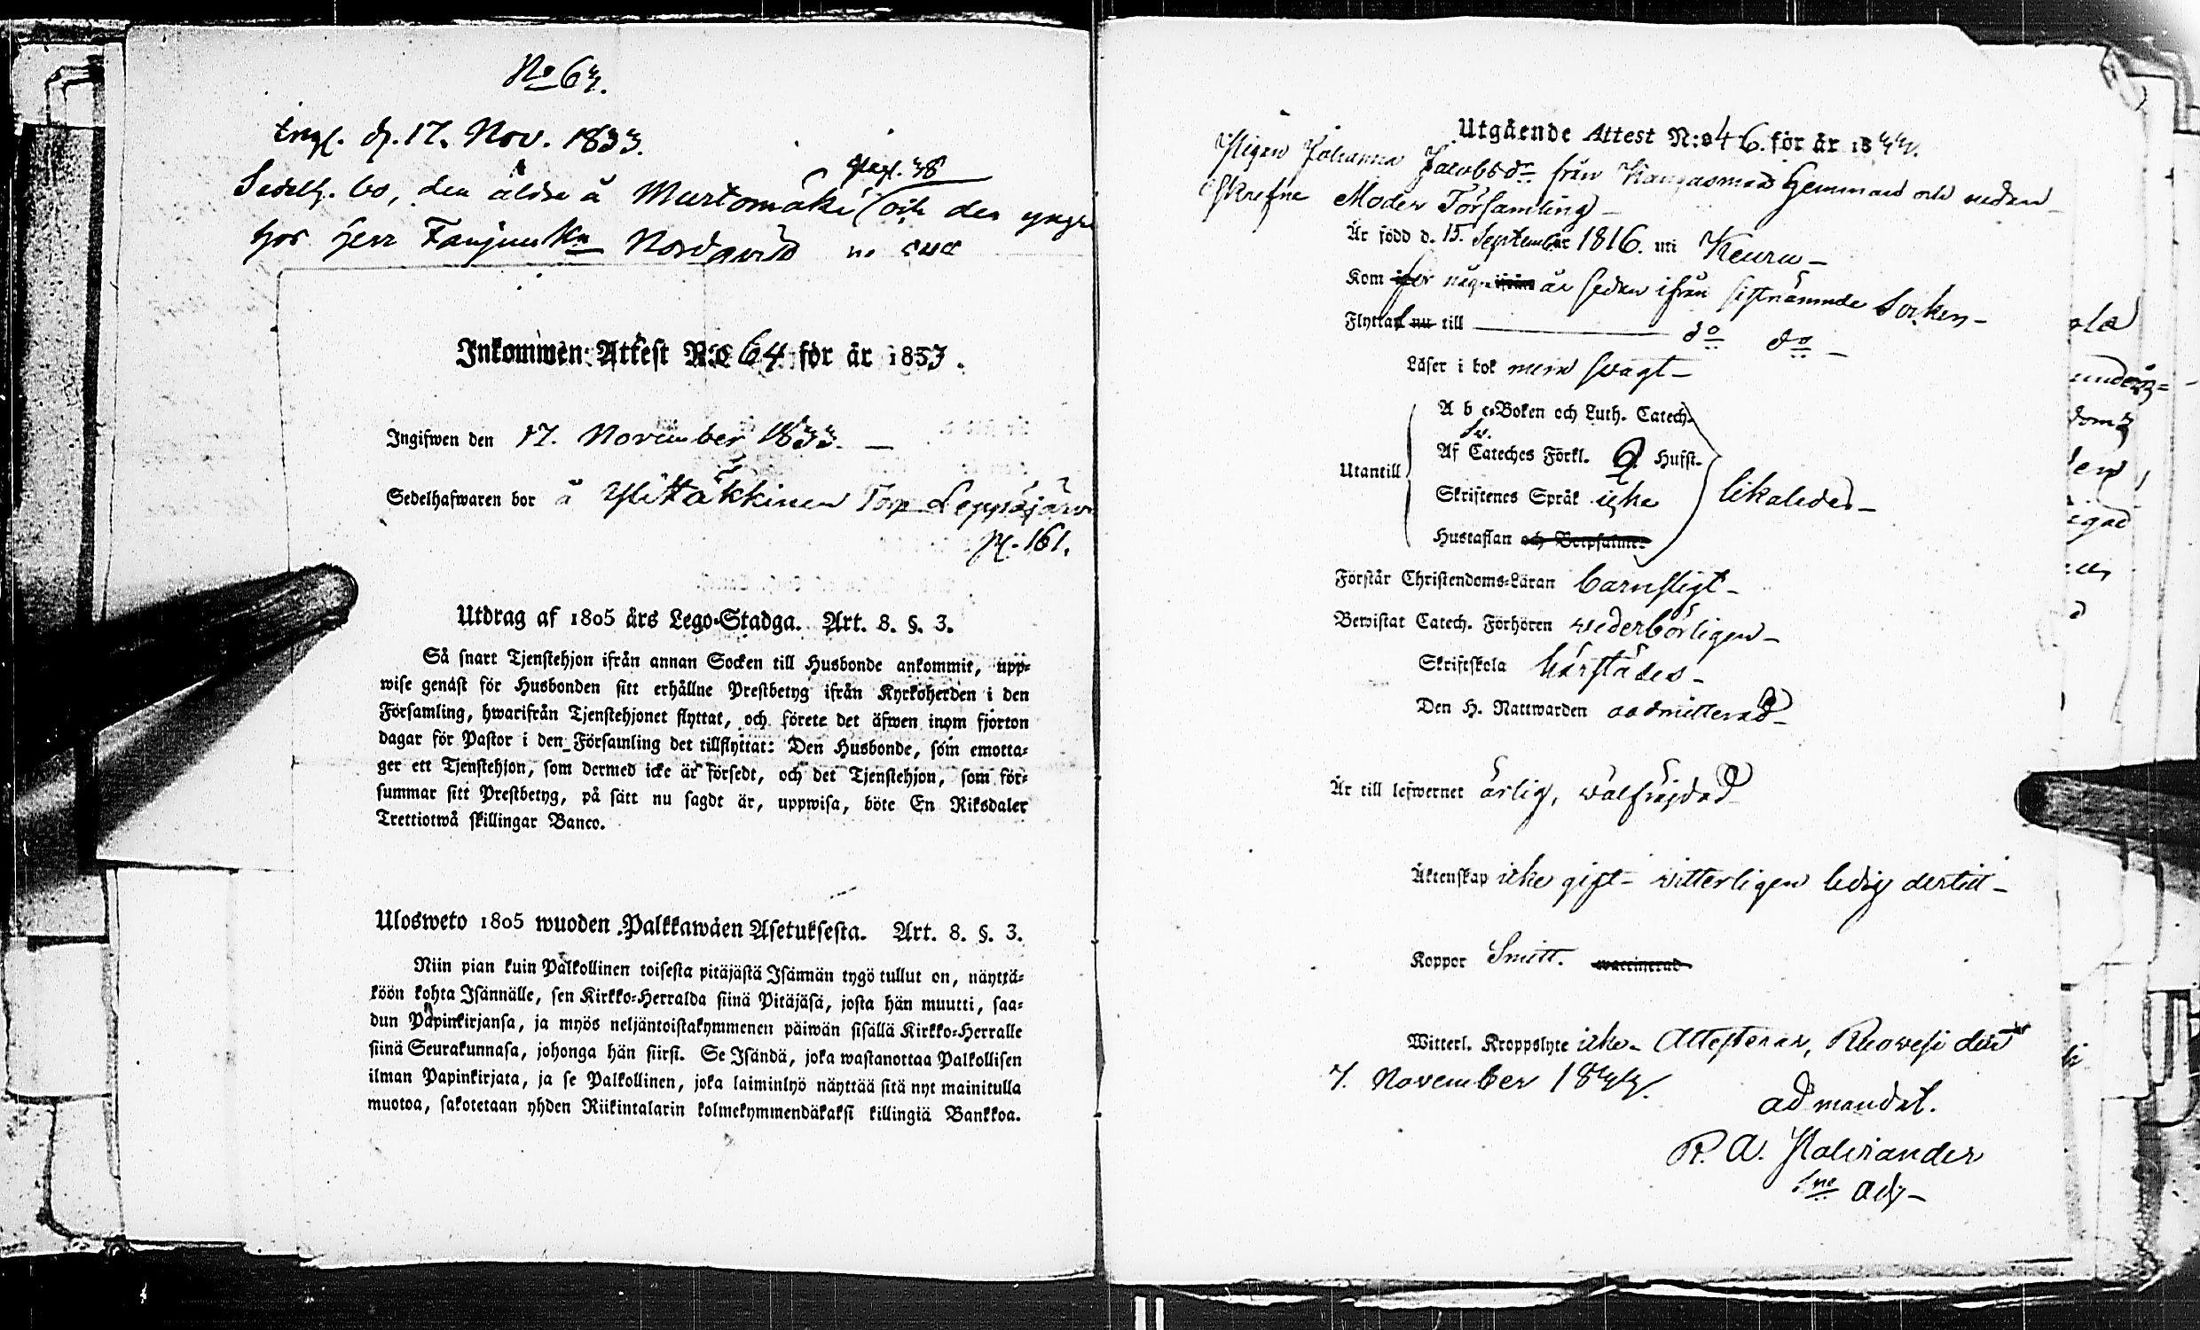 No 64.
Ingf. d. 17. Nov. 1833.
Sedelh. bo, den äldre å Murtomäki (och den yngre
pag. 48
hos Herr Fanjunk. Nordqvist
Inkommen Attest N:o 64 för år 1833.
Ingifwen den 17. November 1833. —
Sedelhafwaren bor å Torp Leppäjärvi
p. 161.
Utdrag af 1805 års Lego-Stadga. Art. 8. §. 3.
Så snart Tjenstehjon ifrån annan Socken till Husbonde ankommit, upp-
wise genast för Husbonden sitt erhållne Prestbetyg ifrån Kyrkoherden i den
Församling, hwarifrån Tjenstehjonet flyttat, och förete det äfwen inom fjorton
dagar för Pastor i den Församling det tillflyttat: Den Husbonde, som emotta-
ger ett Tjenstehjon, som dermed icke är försedt, och det Tjenstehjon, som för-
summar sitt Prestbetyg, på sätt nu sagdt är, uppwisa, böte En Riksdaler
Trettiotwå skillingar Banco.
Ulosweto 1805 wuoden Palkkawäen Asetuksesta. Art. 8. §. 3.
Niin pian kuin Palkollinen toisesta pitäjästä Isännän tygö tullut on, näyttä-
köön kohta Isännälle, sen Kirkko-Herralda siinä Pitäjäsä, josta hän muutti, saa-
dun Papinkirjansa, ja myös neljäntoistakymmenen päiwän sisällä Kirkko-Herralle
siinä Seurakunnasa, johonga hän siirsi. Se Isändä, joka wastanottaa Palkollisen
ilman Papinkirjata, ja se Palkollinen, joka laiminlyö näyttää sitä nyt mainitulla
muotoa, sakotetaan yhden Riikintalarin kolmekymmendäkaksi killingiä Bankkoa.
Utgående Attest N:o 46. för år 1844.
Pigan Johanna Jacobsdr från Kangasmäs Hemman och sedan
Skrefne Moder Församling —
Är född d. 15. September 1816. uti Keuru —
Kom för några år sedan ifrån sistnämnde Socken —
Flyttar nu till — do do —
Läser i bok men svagt —
Utantill
A b c-Boken och Luth. Catech.
Sv.
Af Cateches Förkl. Hufst.
Skriftenes Språk icke
Hustaflan och Botpsalmer
likaledes —
Förstår Christendoms-Läran barnsligt —
Bewistat Catech. Förhören wederbörligen —
Skriftskola härstädes —
Den H. Nattwarden admitterad —
Är till lefwernet ärlig, wälfräjdad
Äktenskap icke gift — witterligen ledig dertill —
Koppor Smitt. waccinerad
Witterl. Kroppslyte icke. Attesterar, Ruovesi den
7. November 1844.
ad mandat.
R. A.
Adj —